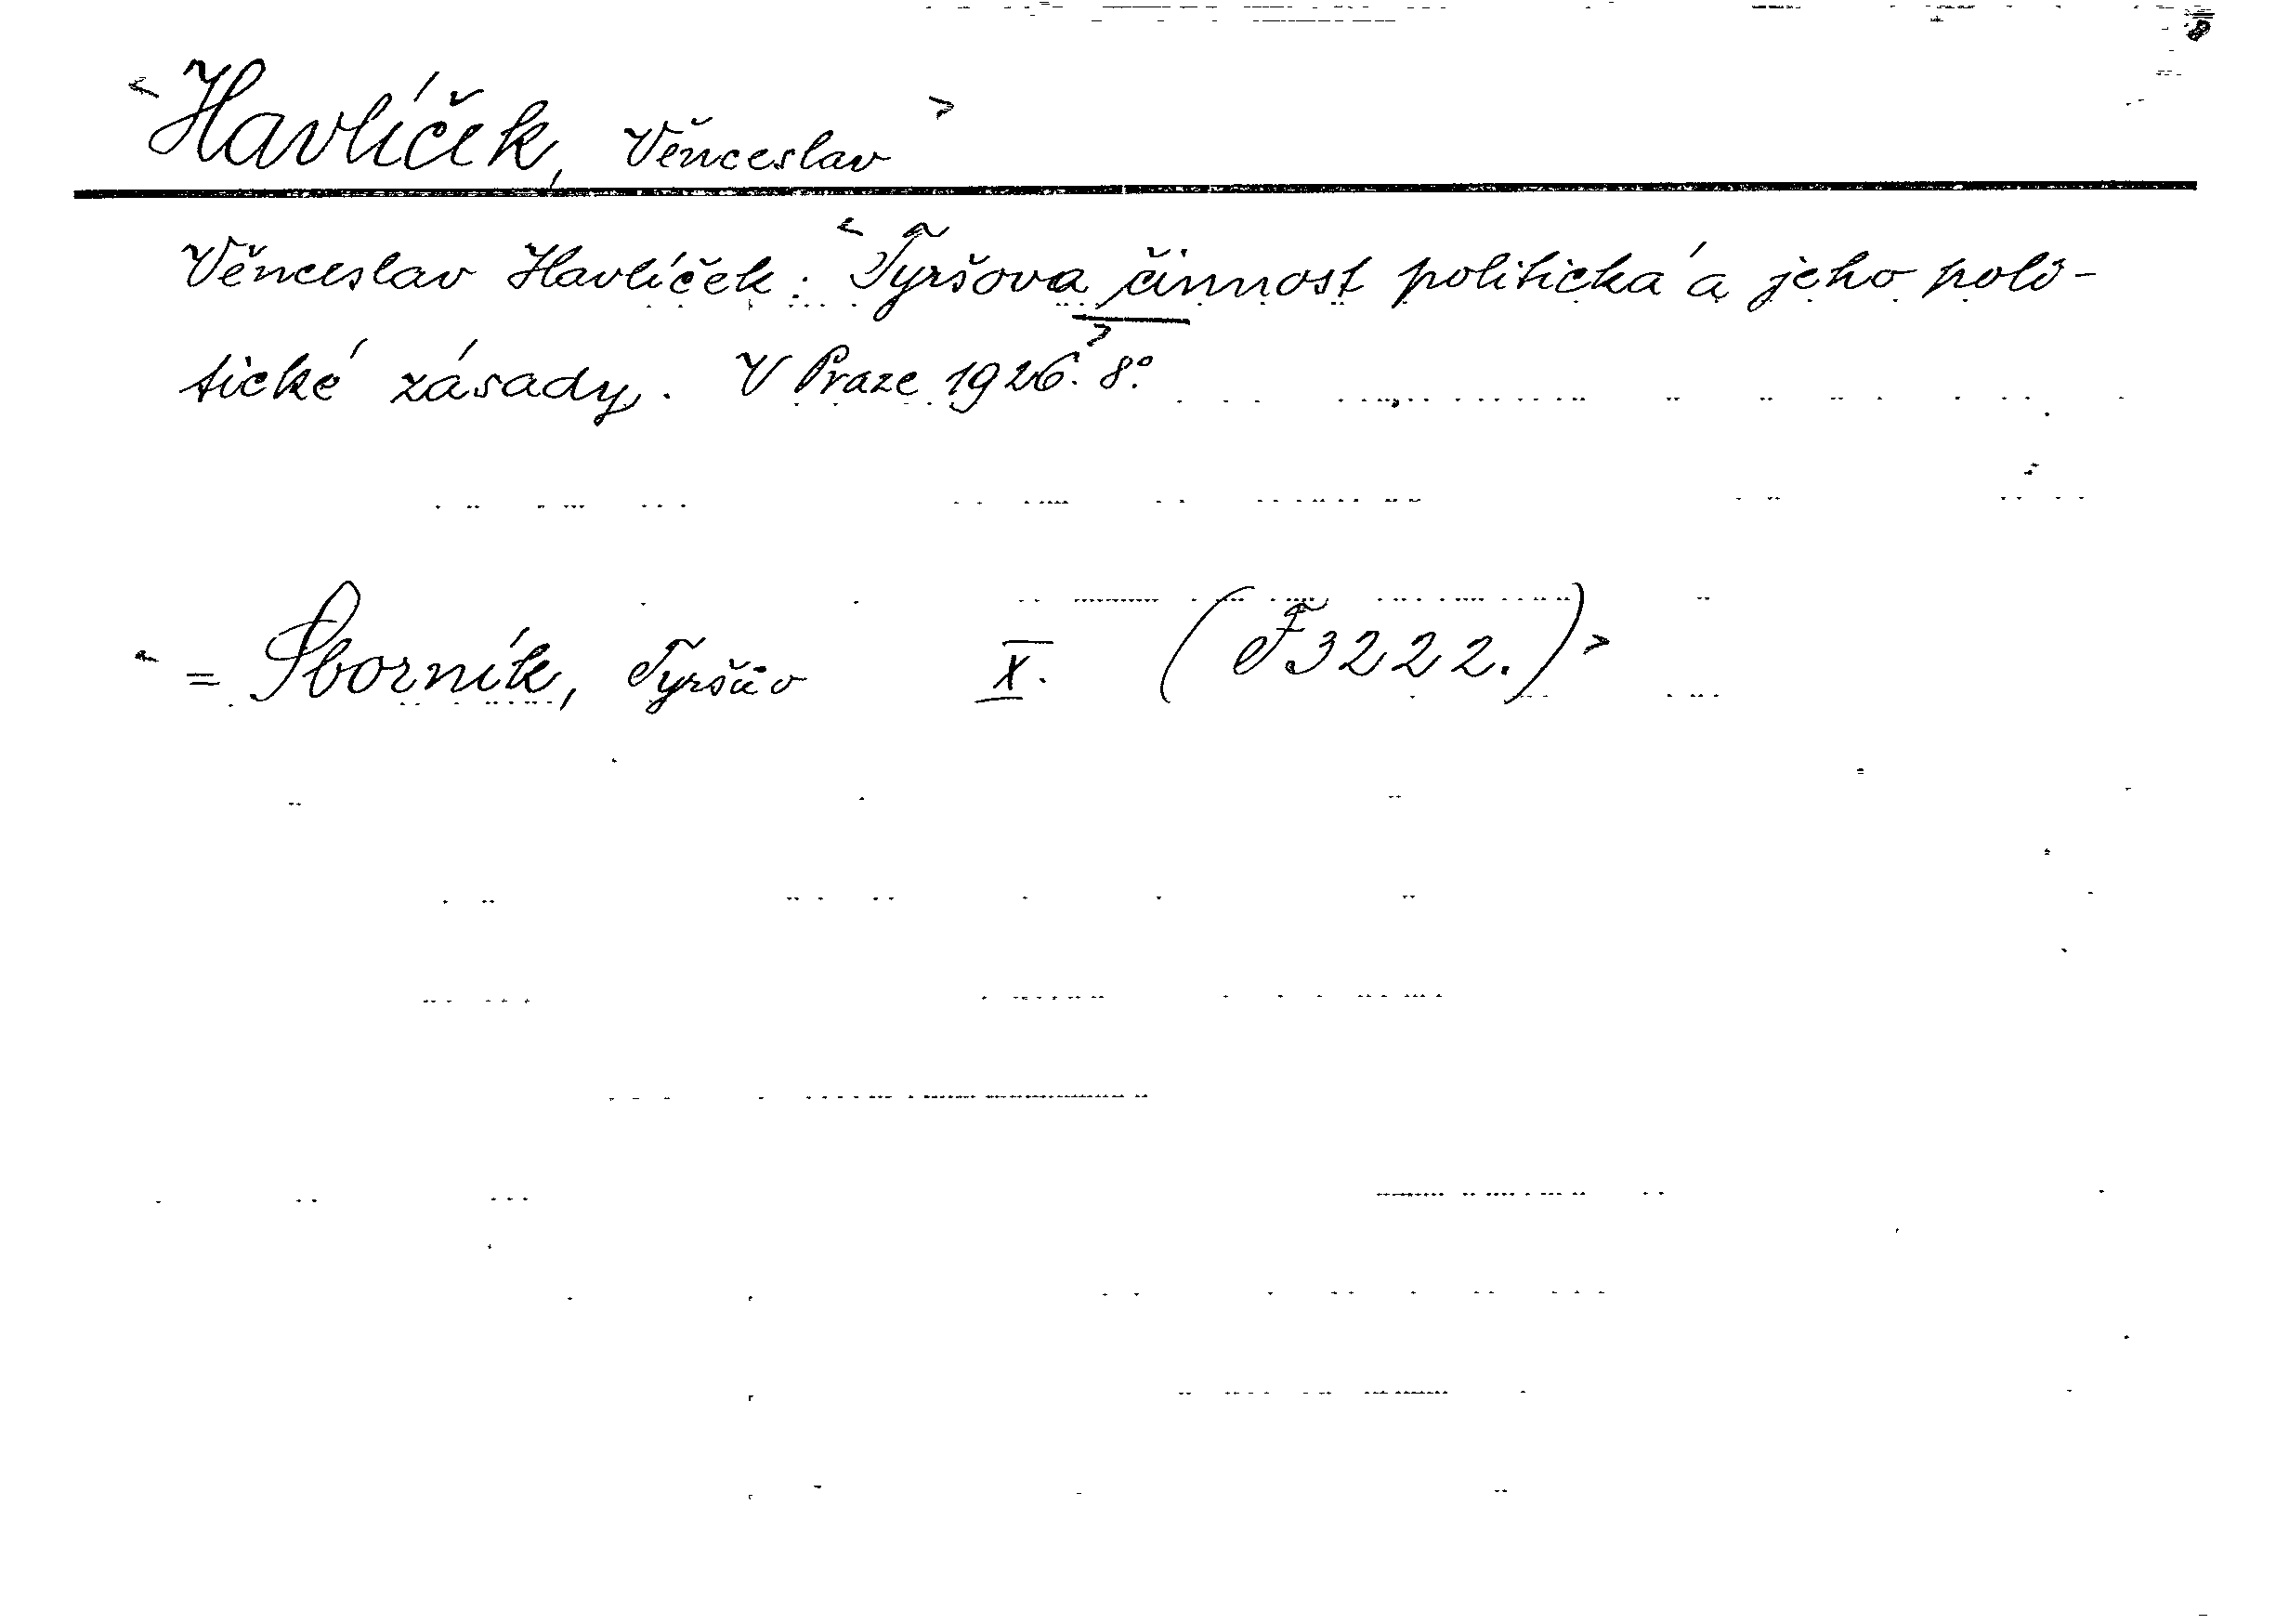 < Havlíček, Věnceslav >
Věnceslav Havlíček: < Tyršova činnost politická a jeho poli-
tické zásady. V Praze 1926. > 8°.
< = Sborník, Tyršův X. (F 3222.) >